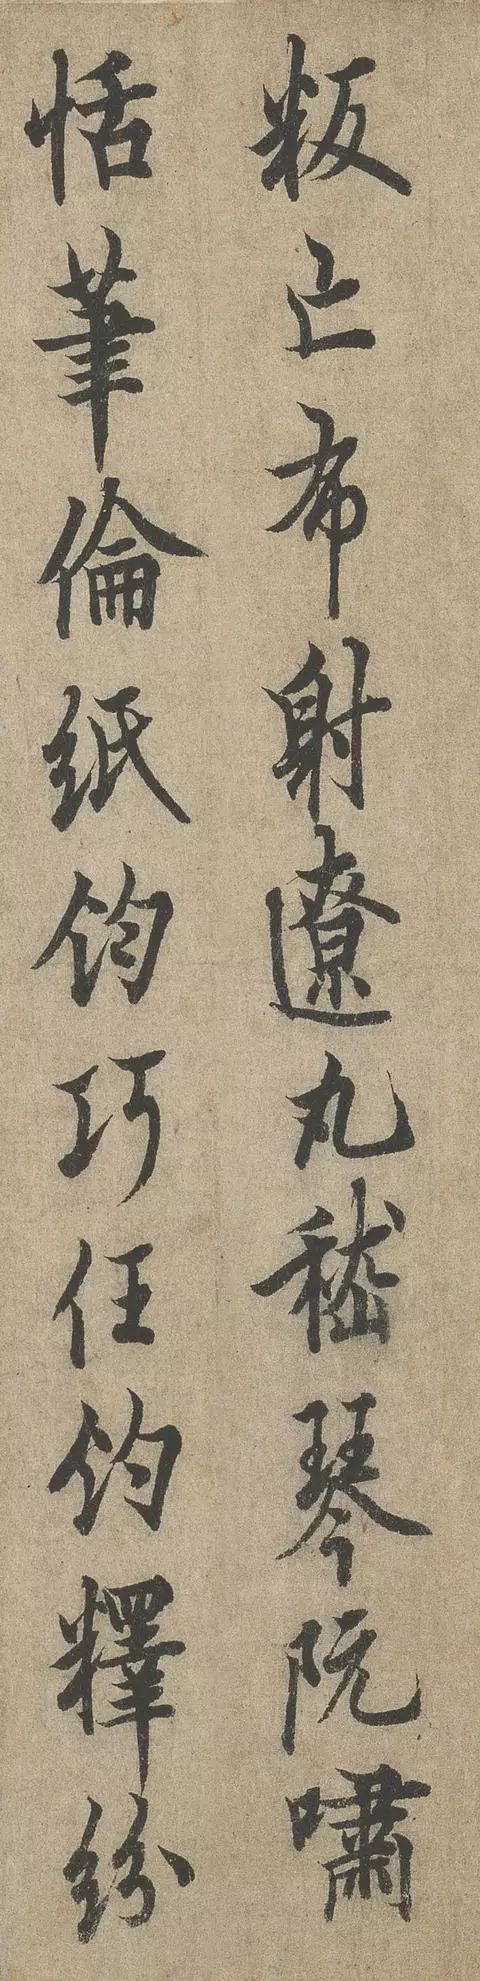 叛亡布射遼丸嵇琴阮嘯
恬筆倫紙鈞巧任釣釋紛